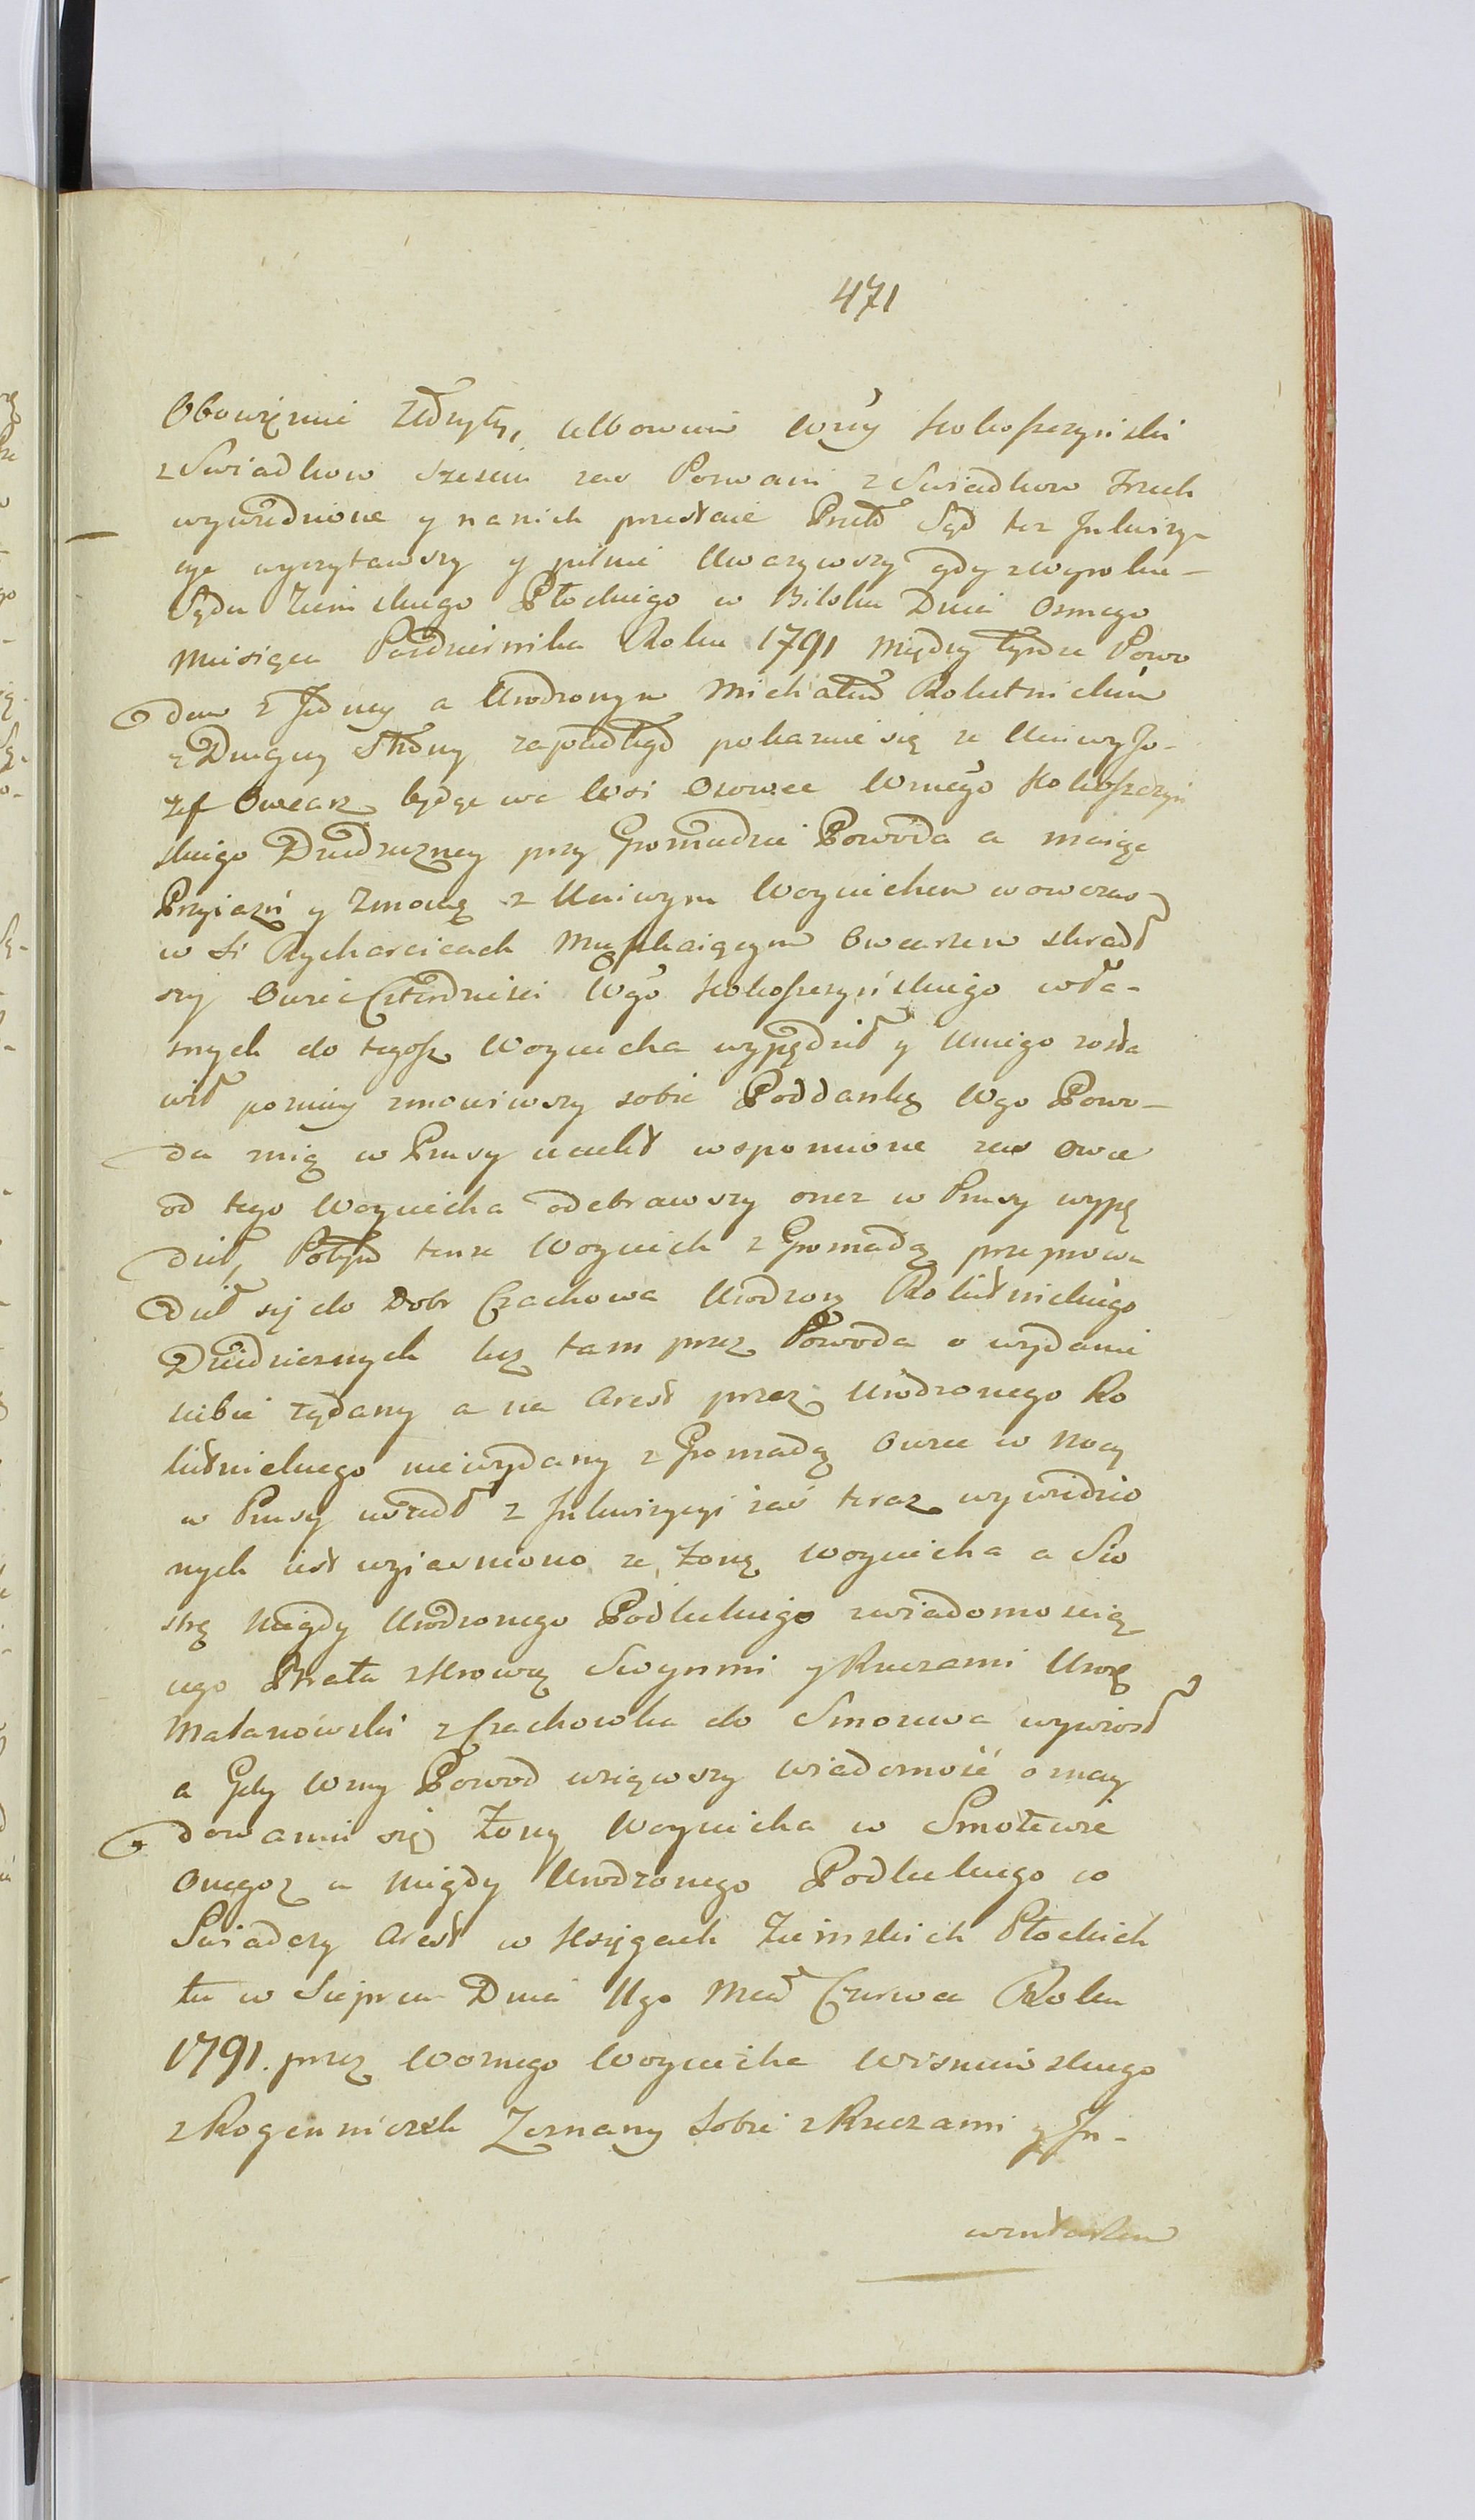 471
Obowięzmie Zdrugty, albowiem Wny Kokoszczynski
z Swiadkow Szesciu zas Pozwani z Swiadkow trzech
wywiedzione y na nich przestaie Przeto Sąd ter Inkwizy-
cye wyczytawszy y pilnie Uwazywszy gdy z Wyroku
Sądu Ziemskiego Płockiego w Bilsku Dnia Osmego
Miesiąca Pazdziernika Roku 1791 między tymże Powo
dem z Jedney a Urodzonym Michałem Rokitnickim
z Drugiey Strony zapadłego pokazuie się ze Uczciwy Jo-
zef Owczarz będąc we Wsi Osowce Wnego Kokoszczyn
skiego Dziedziczney przy Gromadzie Powoda a maiąc
Przyiazń y Zmowę z Uczciwym Woyciechem wowczas
w Si Rycharcicach Mieszkaiącym Owczarzem skradł
szy Owiec Czterdziesci Wgo Kokoszczyńskiego wła-
snych do tegosz Woyciecha wypędził y Uniego zosta
wił pozniey zmowiwszy sobie Poddankę Wgo Powo-
da z nią w Prusy uciekł wspomnione zas Owce
od tego Woyciecha odebrawszy onez w Prusy wypę
dził, Potym tenze Woyciech z Gromadą przeprowa
dził się do Dobr Czachowa Urodzony Rokitnickiego
Dziedzicznych lecz tam przez Powoda o wydanie
siebie rządany a na Arest przez Urodzonego Ro
kitnickiego niewydany z Gromadą Owiec w Nocy
w Prusy uszedł z Inkwizycyi zaś teraz wywiedzio
nych iest wyiasniono ze Żonę Woyciecha a Sio
strę Niegdy Urodzonego Podleckiego z wiadomoscią
iego Brata z Krową Swynmi y Rzeczami Urodz
Malanowski z Czachowka do Smorzewa wywiosł
a Gdy Wny Powod wziąwszy wiadomość o znay
dowaniu się Żony Woyciecha w Smorzewie
Onegoz u Niegdy Urodzonego Podleckiego co
Swiadczy Arest w Xsięgach Ziemskich Płockich
tu w Sierpcu Dnia 11go Mca Czerwca Roku
1791. przez Woznego Woyciecha Wisniewskiego
z Rogenniczek Zeznany Sobie z Rzeczami y In-
wentarzem